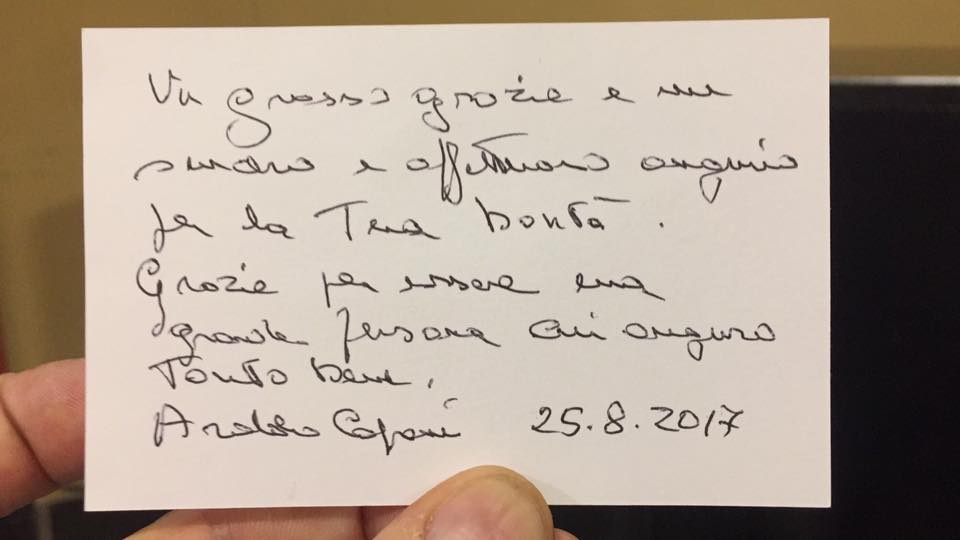 Un grosso grazie e un
sincero e affettuoso augurio
per la Tua bontà.
Grazie per essere una
grande persona cui auguro
Tanto bene.
25.8.2017